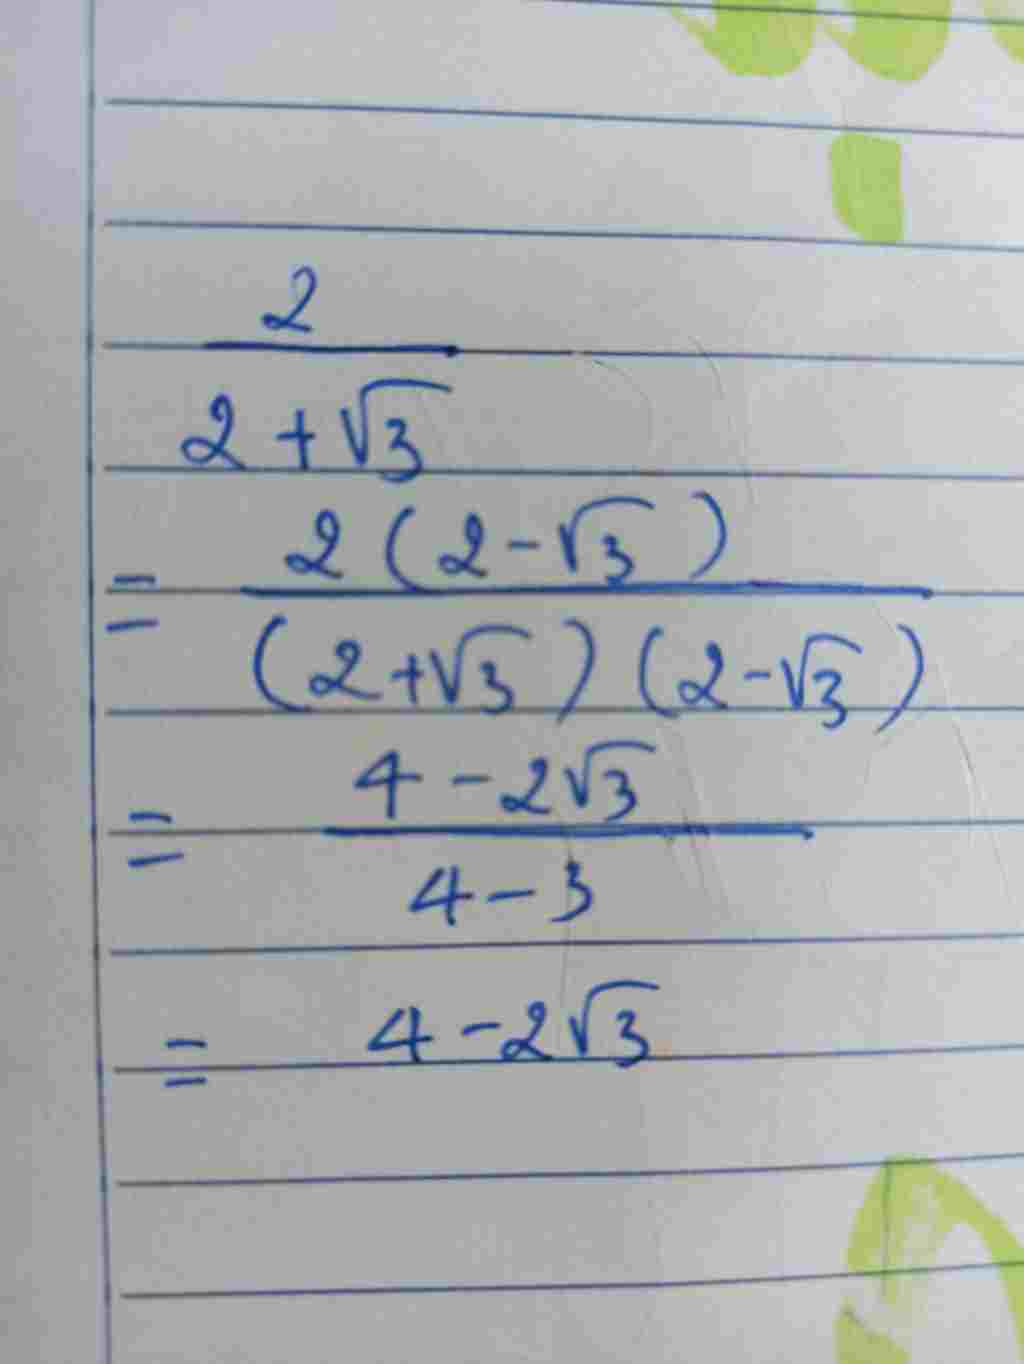 2
2 + √3
= 2 ( 2 - √3 )
( 2 + √3 ) ( 2 - √3 )
= 4 - 2√3
4 - 3
= 4 - 2√3